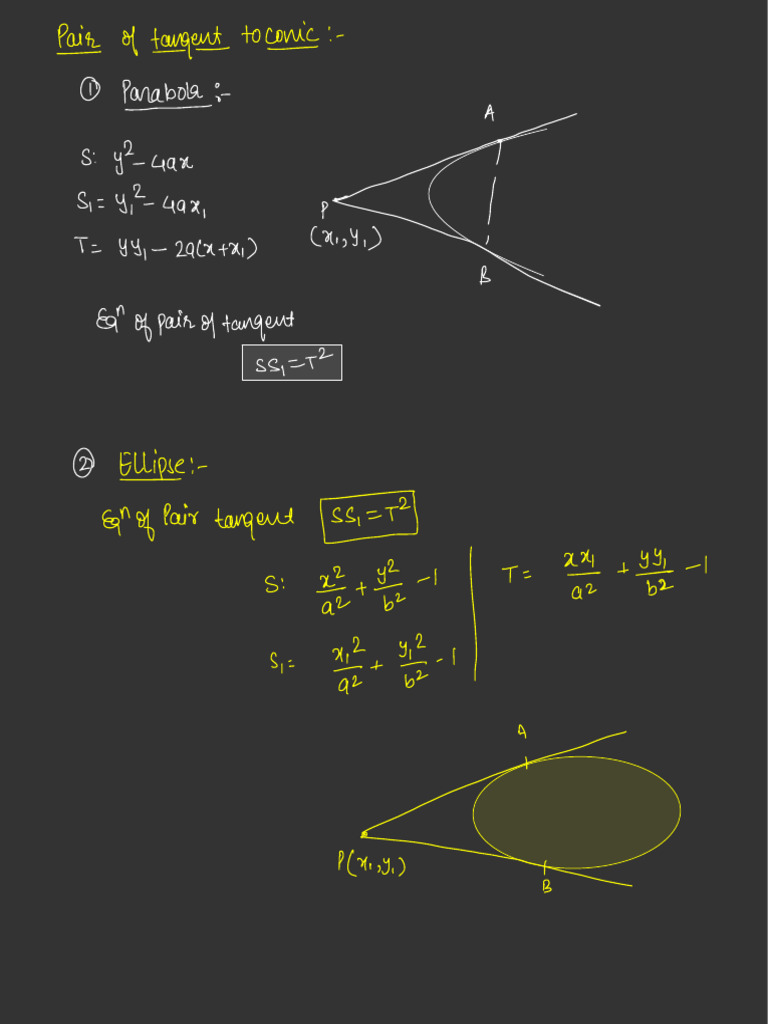 Pair of tangent to conic :-
① Parabola :-
A
S: y² - 4ax
S₁ = y₁² - 4ax₁
P
(x₁, y₁)
T = yy₁ - 2a(x+x₁)
B
Eqⁿ of pair of tangent
SS₁ = T²
② Ellipse :-
Eqⁿ of Pair tangent SS₁ = T²
S: x²/a² + y²/b² - 1
T = xx₁/a² + yy₁/b² - 1
S₁ = x₁²/a² + y₁²/b² - 1
A
P(x₁, y₁)
B